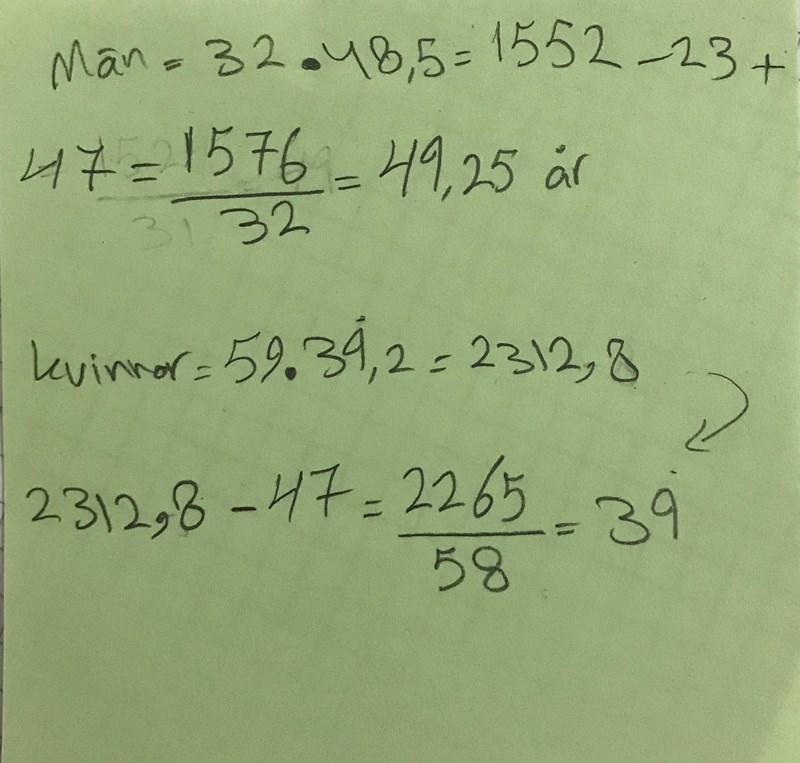 Män = 32 • 48,5 = 1552 - 23 +
47 = 1576 / 32 = 49,25 år
kvinnor = 59 • 39,2 = 2312,8
2312,8 - 47 = 2265 / 58 = 39